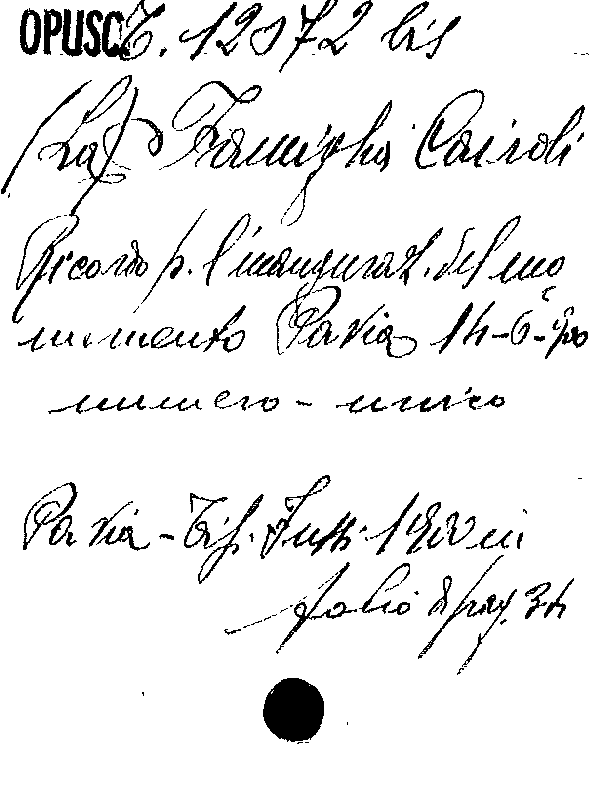 OPUSC. T. 12072 bis
(La) Famiglia Cairoli
Ricordo p. l'inauguraz. del mo
numento Pavia 14-6-900
numero - unico
Pavia - Tip. Fusi. 1900 in
folio di pag. 34